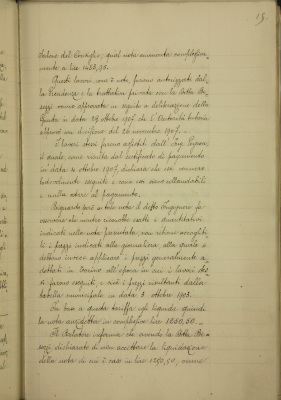 15.
Salone del Consiglio, qual nota ammonta complessiva-
mente a lire 1468,95.
Questi lavori, com'è noto, furono autorizzati dal-
la Presidenza e la trattativa privata con la Ditta
venne approvata in seguito a deliberazione della
Giunta in data 29 Ottobre 1905 che l'Autorità tutoria
approvò con decisione del 26 novembre 1905.
I lavori stessi furono eseguiti dall'Ing.
il quale, come risulta dal certificato di pagamento
in data 4 Ottobre 1905, dichiara che essi vennero
lodevolmente eseguiti e come tali siano collaudabili
e nulla osta al pagamento.
Riguardo però a tale nota il detto Ingegnere fa
osservare che mentre riscontrò esatti i quantitativi
indicati nella nota presentata, non ritiene accoglibi-
li i prezzi indicati alla giornaliera, alla quale si
debbono invece applicare i prezzi generalmente a-
dottati in Torino all'epoca in cui i lavori stes-
si furono eseguiti, e cioè i prezzi risultanti dalla
tabella municipale in data 3 Ottobre 1903.
In base a questa tariffa egli liquida quindi
la nota anzidetta in complessive lire 1250,50.
Il Relatore informa che avendo la Ditta
dichiarato di non accettare la liquidazione
della nota di cui è caso in lire 1250,50, venne